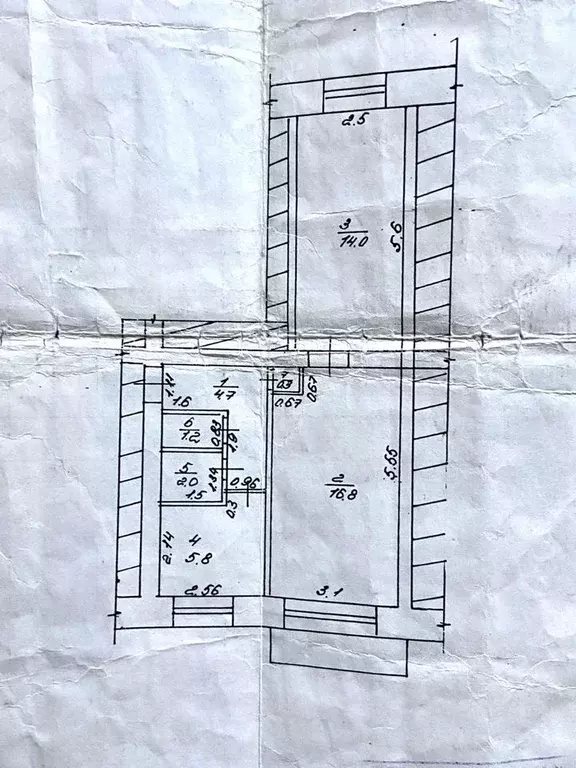 2.5
3
14.0
5.6
1.11
1
4.7
7
0.3
0.67
0.67
1.6
6
1.2
0.83
1.9
5
2.0
1.34
1.5
0.96
0.3
2
16.8
5.65
2.14
4
5.8
2.56
3.1